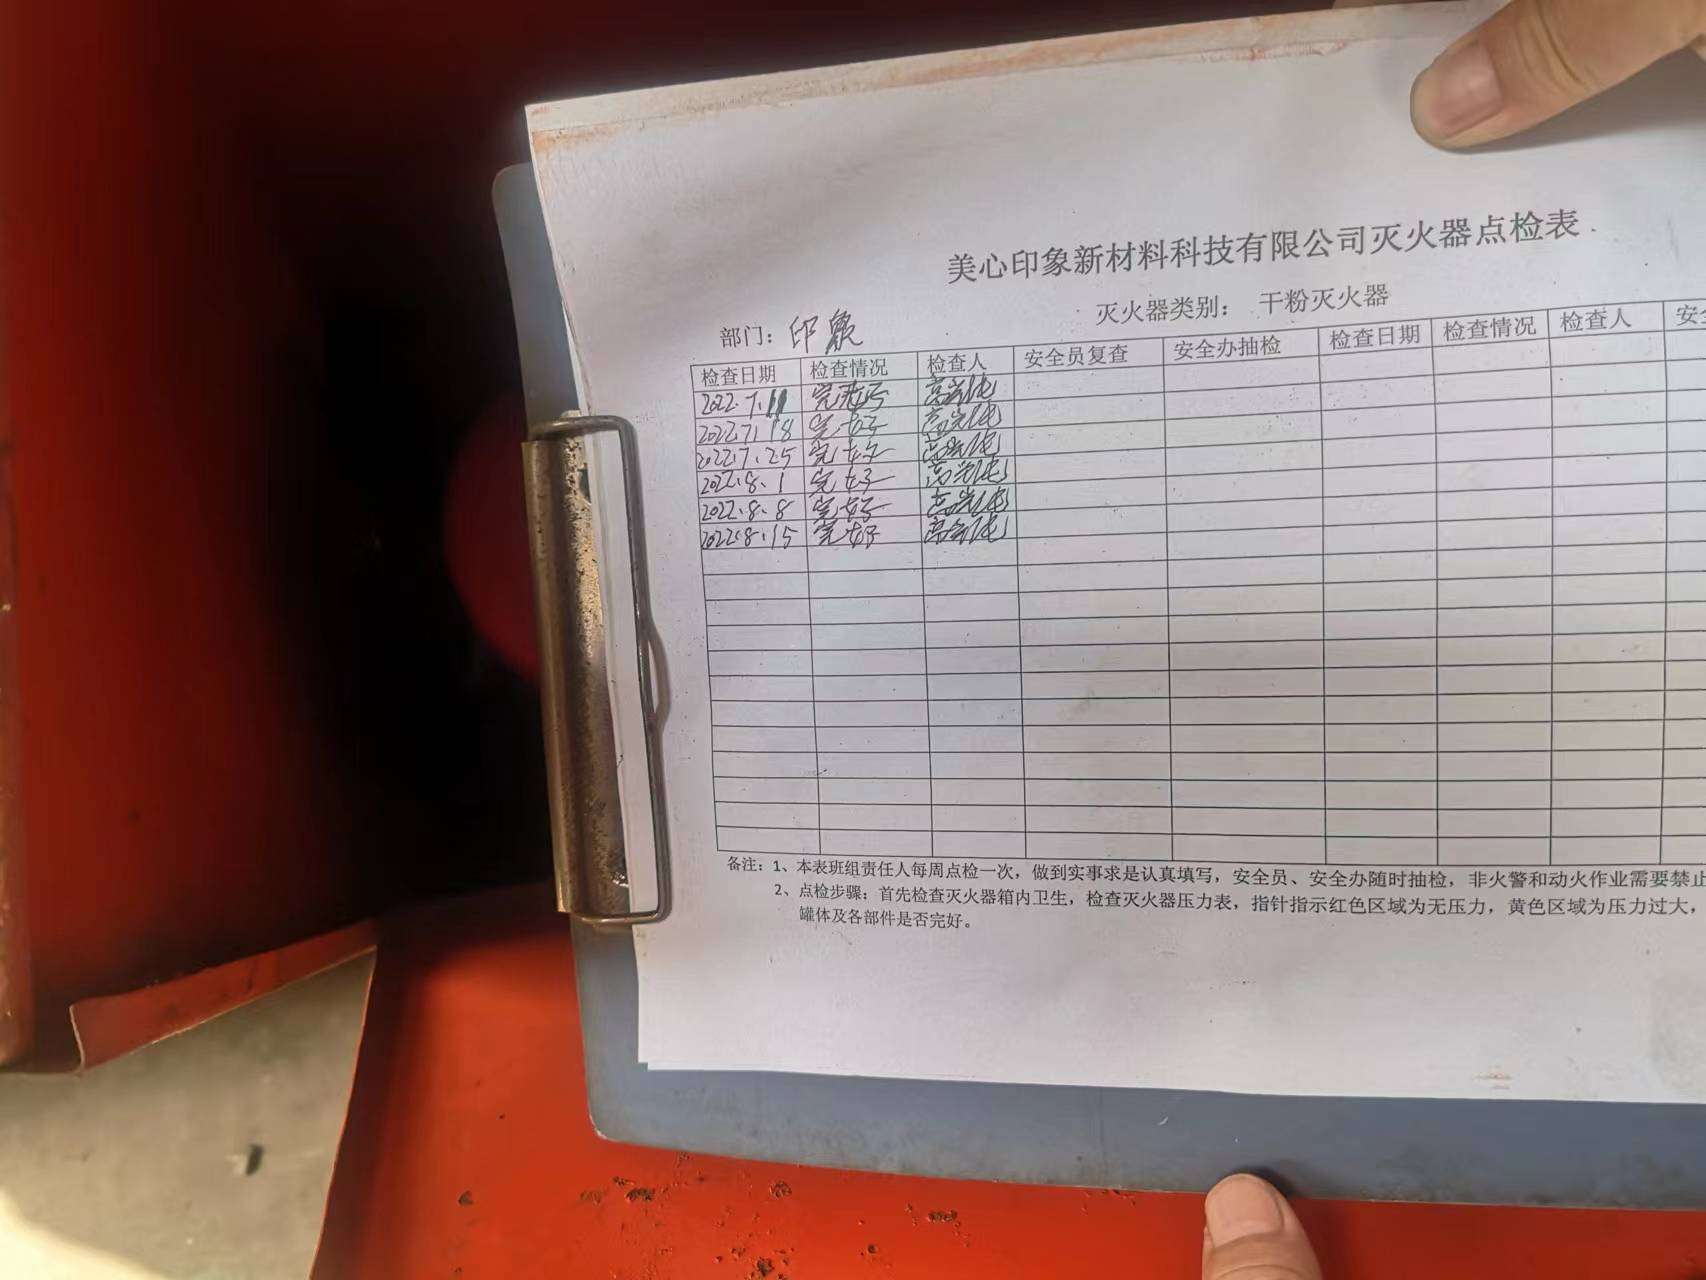 美心印象新材料科技有限公司灭火器点检表
灭火器类别： 干粉灭火器
部门：印象
检查日期 检查情况 检查人 安全员复查 安全办抽检 检查日期 检查情况 检查人 安全
2022.7.11 完好
2022.7.18 完好
2022.7.25 完好
2022.8.1 完好
2022.8.8 完好
2022.8.15 完好
备注：1、本表班组责任人每周点检一次，做到实事求是认真填写，安全员、安全办随时抽检，非火警和动火作业需要禁止
2、点检步骤：首先检查灭火器箱内卫生，检查灭火器压力表，指针指示红色区域为无压力，黄色区域为压力过大，
罐体及各部件是否完好。